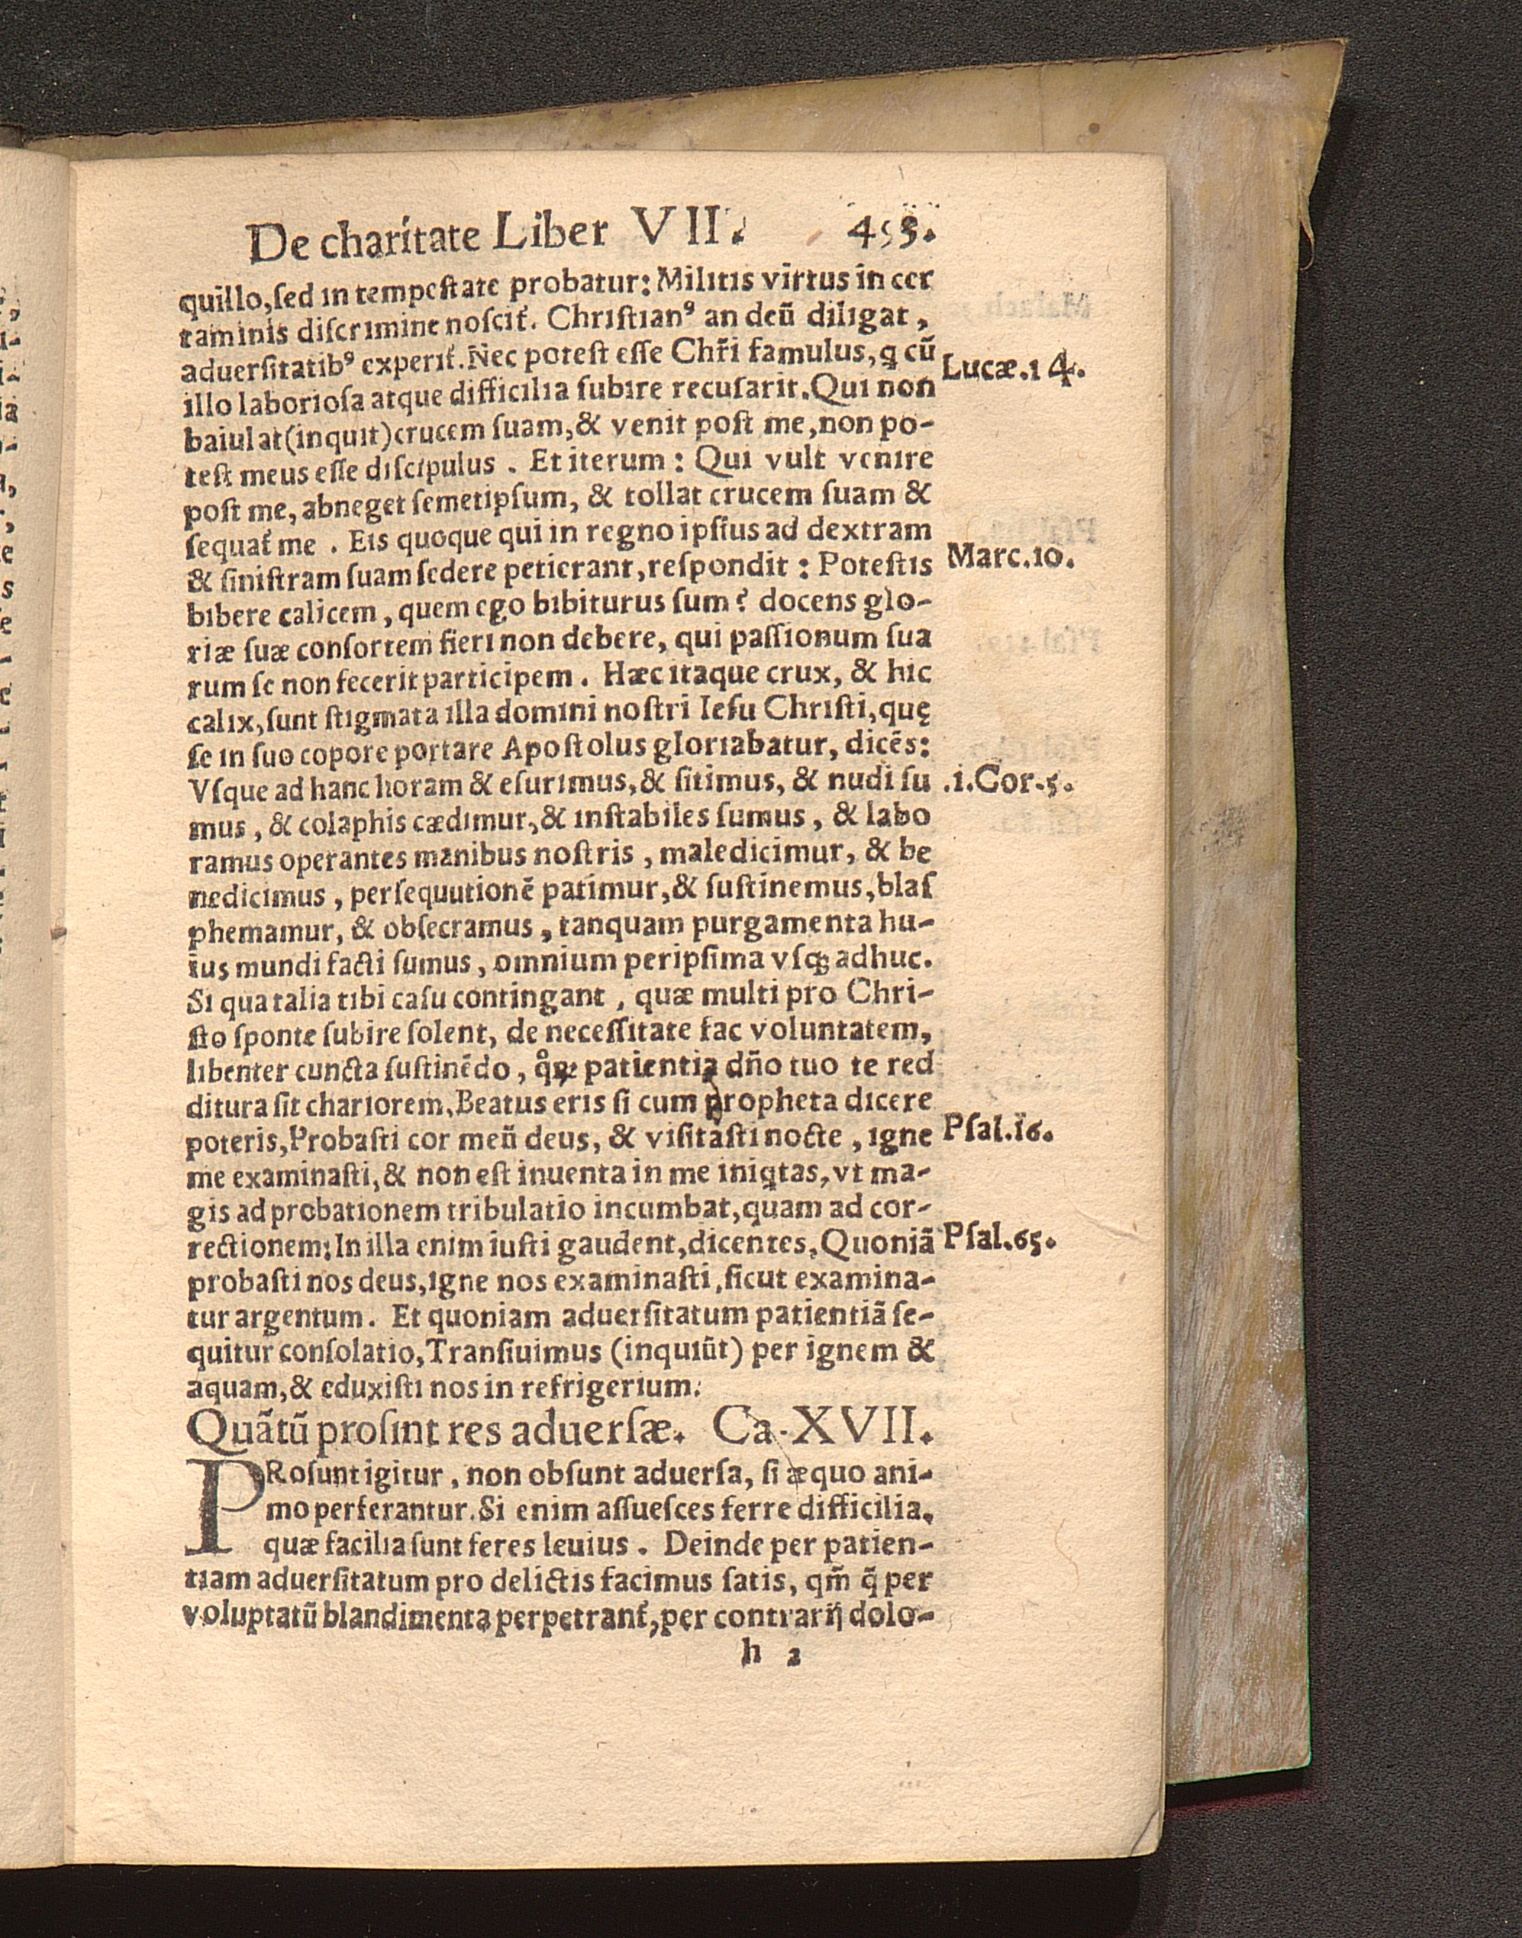 De charitate Liber VII. 453.
quillo, ſed in tempeſtate probatur: Militis virtus in cer
taminis diſcrimine noſcit᷑. Chriſtianꝰ an deū diligat,
aduerſitatibꝰ experit᷑. Nec poteſt eſſe Chr̄i famulus, ꝗ cū
Lucæ. 14.
illo laborioſa atque difficilia ſubire recuſarit. Qui non
baiulat (inquit) crucem ſuam, & venit poſt me, non po-
teſt meus eſſe diſcipulus. Et iterum: Qui vult venire
poſt me, abneget ſemetipſum, & tollat crucem ſuam &
ſequat᷑ me. Eis quoque qui in regno ipſius ad dextram
& ſiniſtram ſuam ſedere petierant, reſpondit: Poteſtis
Marc. 10.
bibere calicem, quem ego bibiturus ſum? docens glo-
riæ ſuæ conſortem fieri non debere, qui paſſionum ſua
rum ſe non fecerit participem. Hæc itaque crux, & hic
calix, ſunt ſtigmata illa domini noſtri Ieſu Chriſti, quę
ſe in ſuo copore portare Apoſtolus gloriabatur, dicēs:
Vſque ad hanc horam & eſurimus, & ſitimus, & nudi ſu
.i. Cor. 5.
mus, & colaphis cædimur, & inſtabiles ſumus, & labo
ramus operantes manibus noſtris, maledicimur, & be
nedicimus, perſequutionē patimur, & ſuſtinemus, blaſ
phemamur, & obſecramus, tanquam purgamenta hu-
ius mundi facti ſumus, omnium peripſima vſq; adhuc.
Si qua talia tibi caſu contingant, quæ multi pro Chri-
ſto ſponte ſubire ſolent, de neceſſitate fac voluntatem,
libenter cuncta ſuſtinēdo, patientia dn̄o tuo te red
ditura ſit chariorem, Beatus eris ſi cum propheta dicere
poteris, Probaſti cor meū deus, & viſitaſti nocte, igne
Pſal. 16.
me examinaſti, & non eſt inuenta in me iniꝗtas, vt ma-
gis ad probationem tribulatio incumbat, quam ad cor-
rectionem: In illa enim iuſti gaudent, dicentes, Quoniā
Pſal. 65.
probaſti nos deus, igne nos examinaſti, ſicut examina-
tur argentum. Et quoniam aduerſitatum patientiā ſe-
quitur conſolatio, Tranſiuimus (inquiūt) per ignem &
aquam, & eduxiſti nos in refrigerium.
Quātū proſint res aduerſæ. Ca. XVII.
PRoſunt igitur, non obſunt aduerſa, ſi æquo ani-
mo perferantur. Si enim aſſueſces ferre difficilia,
quæ facilia ſunt feres leuius. Deinde per patien-
tiam aduerſitatum pro delictis facimus ſatis, qm̄ q̄ per
voluptatū blandimenta perpetrant᷑, per contrarij dolo-
h 2